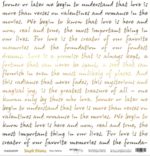 Sooner or later we begin to understand that love is
more than verses on valentines and romance in the
movies. We begin to know that love is here and
now, real and true, the most important thing in
our lives. For love is the creator of our favorite
memories and the foundation of our fondest
dreams. Love is a promise that is always kept, a
fortune that can never be spent, a seed that can
flourish in even the most unlikely of places. And
this radiance that never fades, this mysterious and
magical joy, is the greatest treasure of all – one
known only by those who love. Sooner or later we
begin to understand that love is more than verses on
valentines and romance in the movies. We begin to
know that love is here and now, real and true, the
most important thing in our lives. For love is the
creator of our favorite memories and the foundation